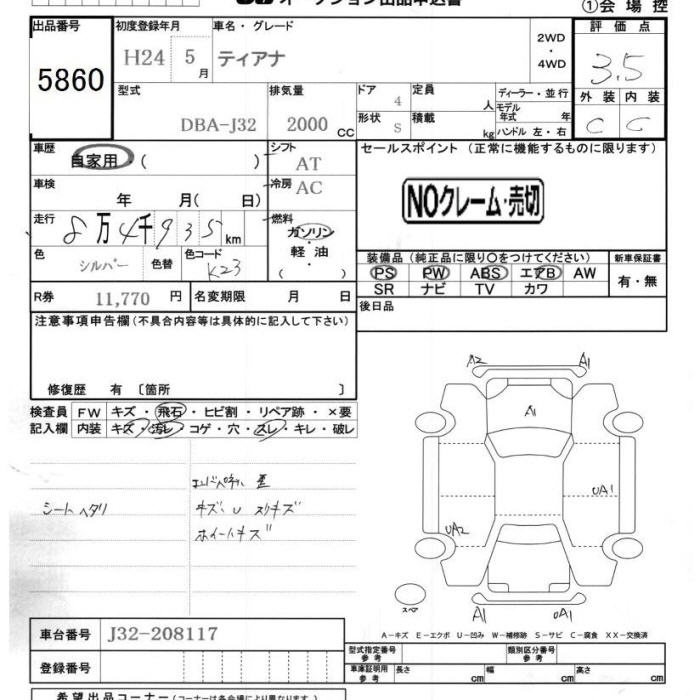 オークション出品申込書
①会場控
出品番号 初度登録年月 車名・グレード 評価点
5860 H24 5月 ティアナ 2WD・4WD 3.5
型式 排気量 ドア 定員 ディーラー・並行 外装 内装
DBA-J32 2000 CC 4 人 モデル年式 年 C C
形状 S 積載 kg ハンドル 左・右
車歴 自家用・( ) シフト AT セールスポイント (正常に機能するものに限ります)
車検 年 月( 日) 冷房 AC
NOクレーム・売切
走行 8万4千935km 燃料 ガソリン・軽油・( )
色 シルバー 色替 色コード K23
装備品(純正品に限り○をつけてください) 新車保証書
PS PW ABS エアB AW 有・無
SR ナビ TV カワ
R券 11,770 円 名変期限 月 日 後日品
注意事項申告欄(不具合内容等は具体的に記入して下さい)
修復歴 有〔箇所 〕
検査員 FW キズ・飛石・ヒビ割・リペア跡・×要
記入欄 内装 キズ・汚レ・コゲ・穴・スレ・キレ・破レ
シートヘタリ
キズ、U スリキズ
ホイールキズ
A2 A1
A1
UA1
UA2
スペア
A1 UA1
A-キズ E-エクボ U-凹み W-補修跡 S-サビ C-腐食 XX-交換済
車台番号 J32-208117
型式指定番号 参考 類別区分番号 参考
登録番号
車庫証明用 参考 長さ cm 幅 cm 高さ cm
希望出品コーナー(コーナーは各会場により異なります)